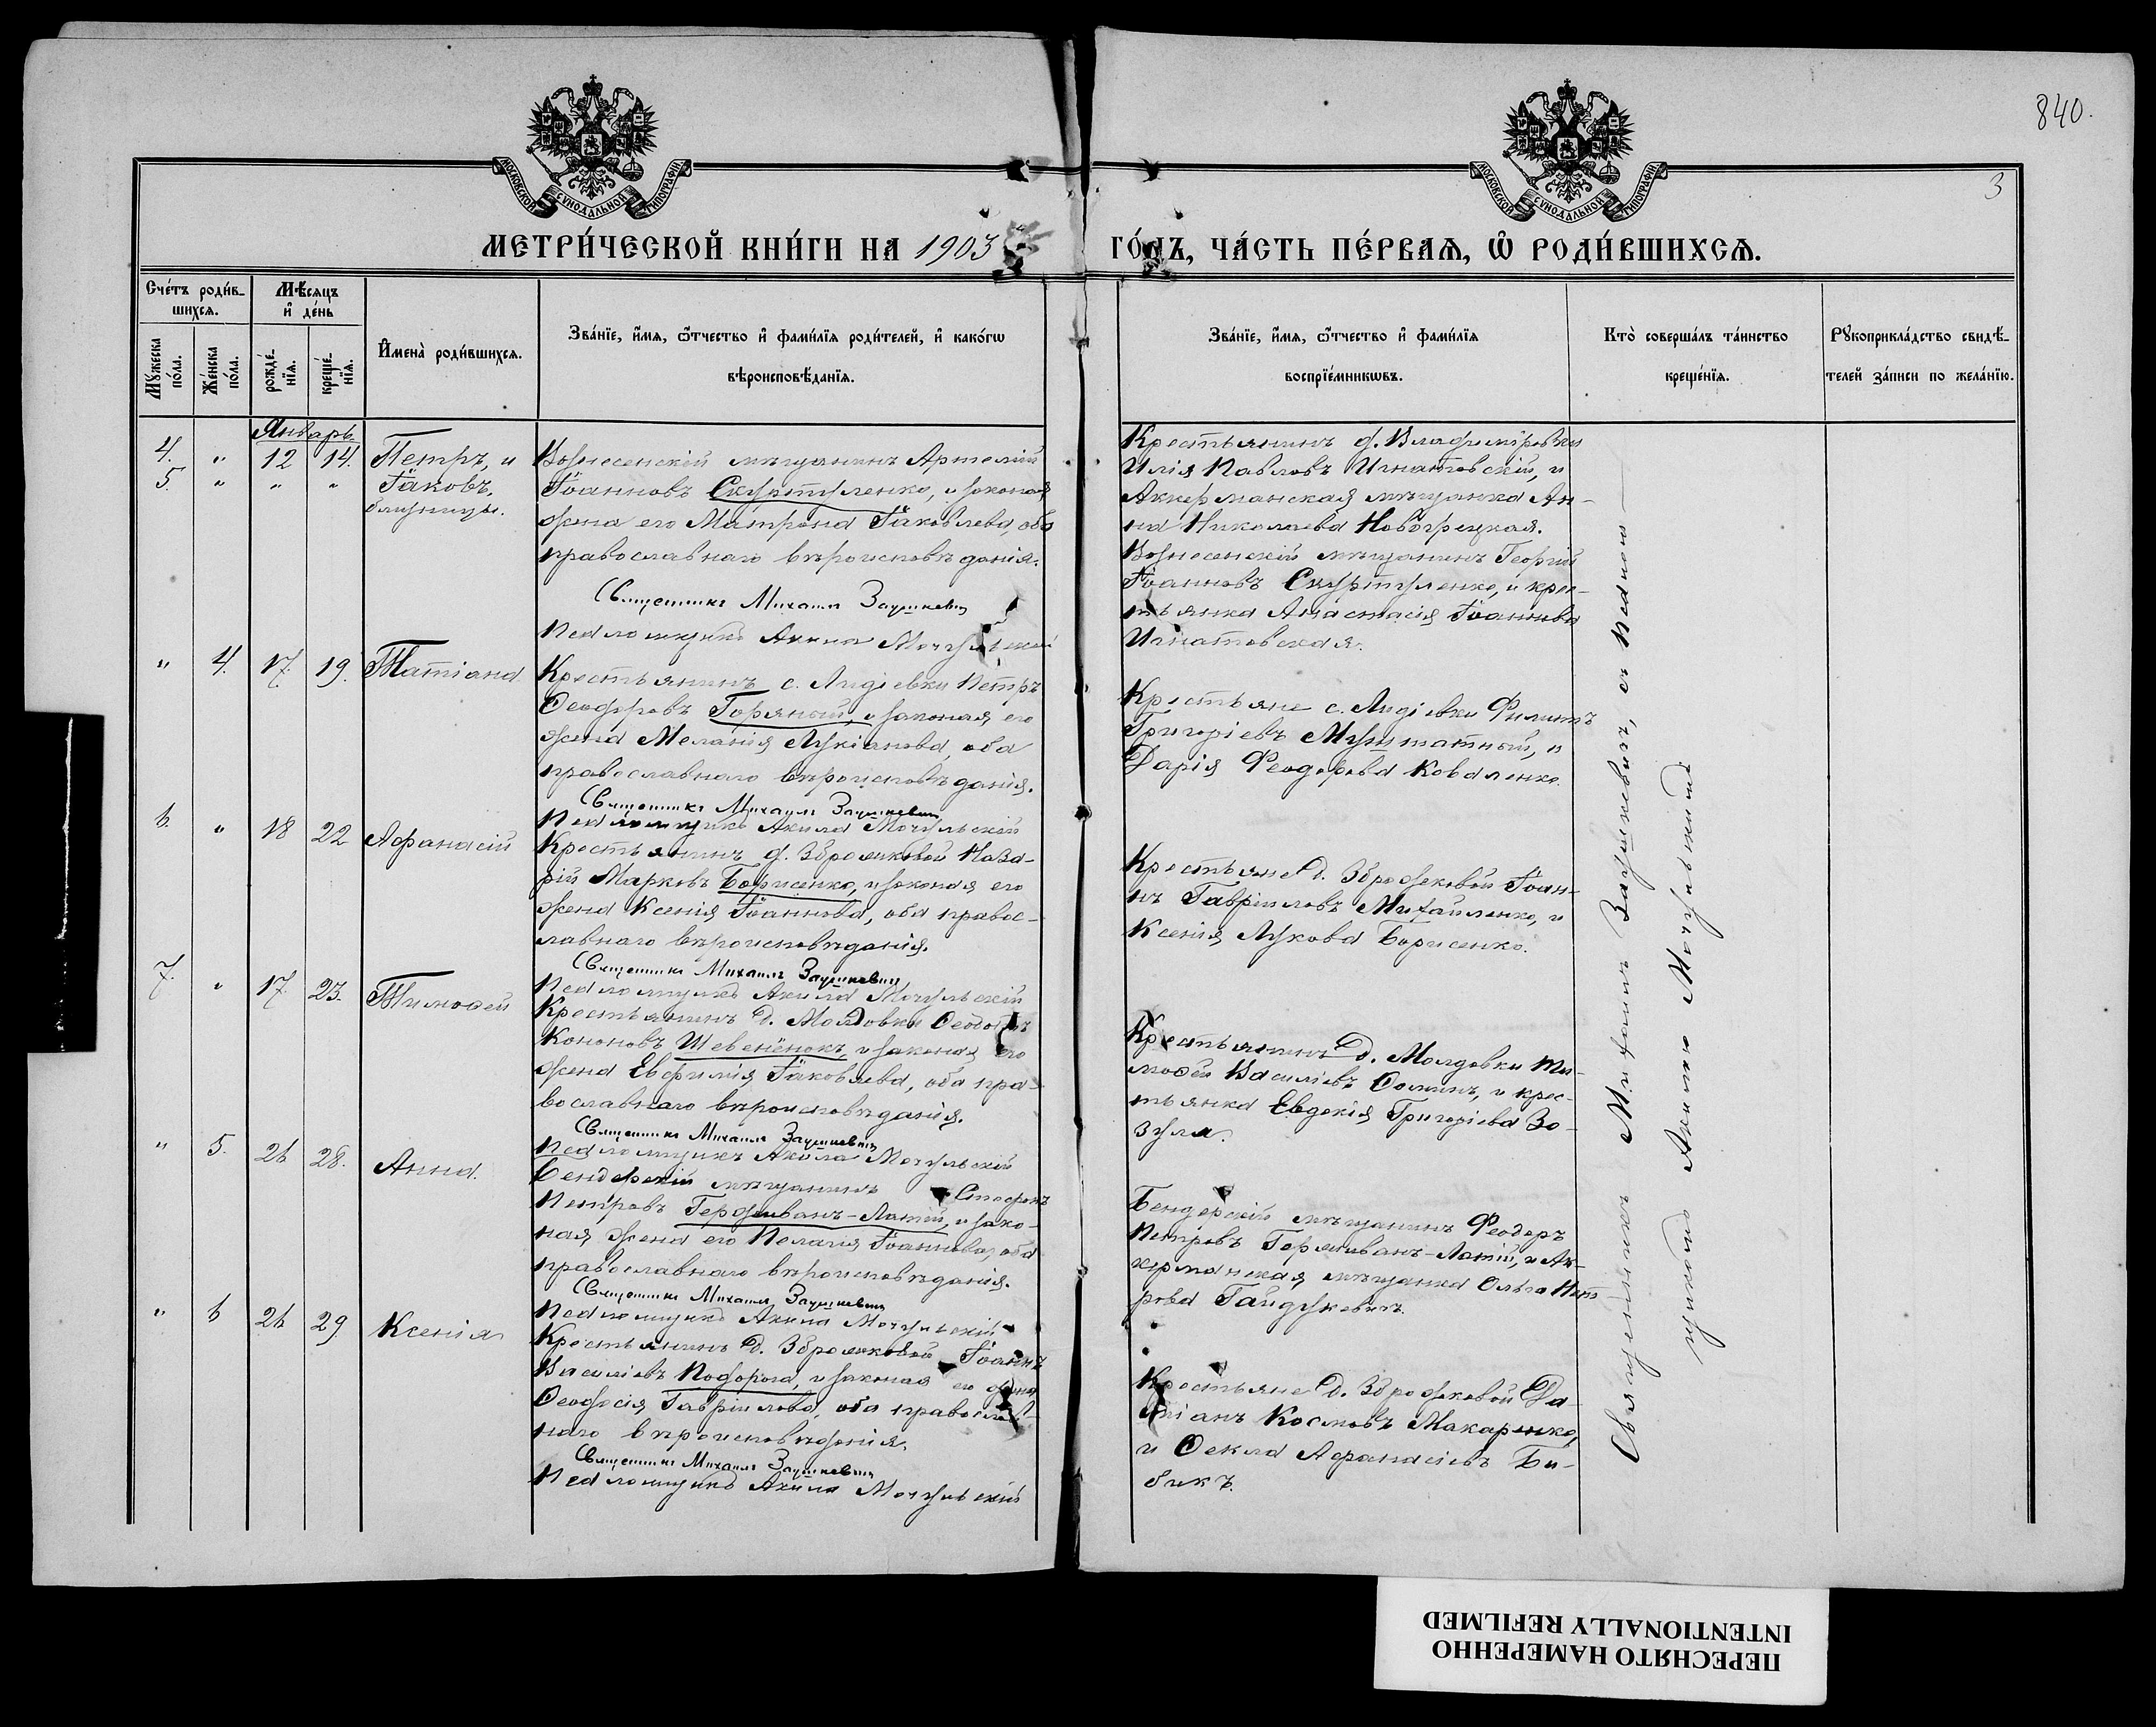 840.
3
МОСКОВСКОЙ СѴНОДАЛЬНОЙ ТИПОГРАФІИ
МОСКОВСКОЙ СѴНОДАЛЬНОЙ ТИПОГРАФІИ
МЕТРИ́ЧЕСКОЙ КНИ́ГИ НА 1903 ГО́ДЪ, ЧА́СТЬ ПЕ́РВАѦ, Ѡ҆ РОДИ́ВШИХСѦ.
Сче́тъ роди́в-
шихсѧ.
Мѣ́сѧцъ
и҆ де́нь
Мꙋ́жеска по́ла.
Же́нска по́ла.
рожде́-
нїѧ.
креще́-
нїѧ.
И҆мена̀ роди́вшихсѧ.
Зва́нїе, и҆́мѧ, ѻ҆́тчество и҆ фами́лїѧ роди́телей, и҆ како́гѡ
вѣроисповѣ́данїѧ.
Зва́нїе, и҆́мѧ, ѻ҆́тчество и҆ фами́лїѧ
воспрїе́мникѡвъ.
Кто̀ соверша́лъ та́инство
креще́нїѧ.
Рꙋкоприкла́дство свидѣ́-
телей за́писи по жела́нїю.
Январь
4. " 12 14. Петръ, и
5. " " " Іаковъ,
близнецы.
Вознесенскій мѣщанинъ Артемій
Іоанновъ Скуртуленко, и законая
жена его Матрона Іаковлева, оба
православнаго вѣроисповѣданія.
Священникъ Михаилъ Заушкевич
Псаломщикъ Акила Мочульскій
Крестьянинъ д. Владиміровки
Илія Павловъ Игнатовскій, и
Аккерманская мѣщанка Ан-
на Николаева Новогрецкая.
Вознесенскій мѣщанинъ Георгій
Іоанновъ Скуртуленко, и крес-
тьянка Анастасія Іоаннова
Игнатовская.
" 4. 17. 19. Татіана.
Крестьянинъ с. Лидіевки Петръ
Ѳеодоровъ Горяный, и законая его
жена Меланія Лукіанова, оба
православнаго вѣроисповѣданія.
Священникъ Михаилъ Заушкевич
Псаломщикъ Акила Мочульскій
Крестьяне с. Лидіевки Филиппъ
Григоріевъ Мушматный, и
Дарія Феодорова Коваленко.
6. " 18 22 Афанасій
Крестьянинъ д. Зброжковой Наза-
рій Марковъ Борисенко, и законая его
жена Ксенія Іоаннова, оба правос-
лавнаго вѣроисповѣданія.
Священникъ Михаилъ Заушкевич
Псаломщикъ Акила Мочульскій
Крестьяне д. Зброжековой Іоан-
нъ Гавріиловъ Михайленко, и
Ксенія Лукова Борисенко.
7. " 17. 23. Тимоѳей
Крестьянинъ д. Молдовки Ѳеодотъ
Кононовъ Шевенёнокъ, и законая его
жена Евфимія Іаковлева, оба пра-
вославнаго вѣроисповѣданія.
Священникъ Михаилъ Заушкевич
Псаломщикъ Акила Мочульскій
Крестьянинъ д. Молдовки Ти-
моѳей Василіевъ Ѳоминъ, и крес-
тьянка Евдокія Григоріева Зо-
зуля.
" 5. 26 28. Анна.
Бендерскій мѣщанинъ Стефанъ
Петровъ Герживанъ-Латій, и зако-
ная жена его Пелагія Іоаннова, оба
православнаго вѣроисповѣданія.
Священникъ Михаилъ Заушкевич
Псаломщикъ Акила Мочульскій
Бендерскій мѣщанинъ Феодоръ
Петровъ Герживанъ-Латій, и Ак-
керманская мѣщанка Ольга Пет-
рова Гайдукевичъ.
" 6 26 29 Ксенія
Крестьянинъ д. Зброжковой Іоаннъ
Василіевъ Подорога, и законая его жена
Ѳеодосія Гавріилова, оба православ-
наго вѣроисповѣданія.
Священникъ Михаилъ Заушкевич
Псаломщикъ Акила Мочульскій
Крестьяне д. Зброжековой Да-
міанъ Космовъ Макаренко,
и Ѳекла Афанасіевъ Би-
бикъ.
Священникъ Михаилъ Заушкевичъ, съ псалом-
щикомъ Акилою Мочульскимъ
ПЕРЕСНЯТО НАМЕРЕННО
INTENTIONALLY REFILMED